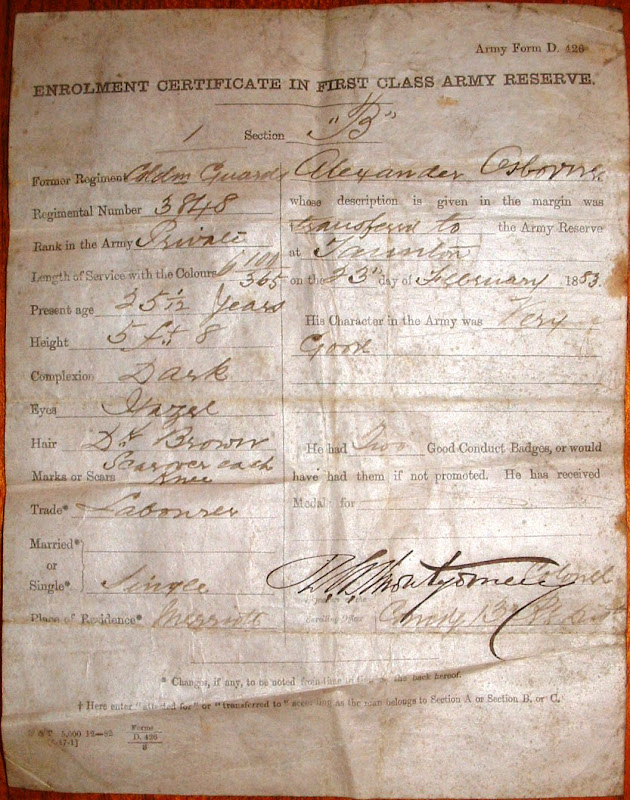 Army Form D. 426
ENROLMENT CERTIFICATE IN FIRST CLASS ARMY RESERVE.
1 Section "B"
Former Regiment Coldm Guards
Regimental Number 3848
Rank in the Army Private
Length of Service with the Colours 6 100/365
Present age 25 1/12 Years
Height 5 ft 8
Complexion Dark
Eyes Hazel
Hair Dk Brown
Marks or Scars Scar over each
Knee
Trade* Labourer
Married*
or
Single* Single
Place of Residence* Merriott
Alexander Osborne
whose description is given in the margin was
† transferred to the Army Reserve
at Taunton
on the 23d day of February 1883.
His Character in the Army was Very
Good
He had Two Good Conduct Badges, or would
have had them if not promoted. He has received
Medal for
Montgomery Colonel
Enrolling Officer Comdg 13
* Changes, if any, to be noted from time to time on the back hereof.
† Here enter "attested for" or "transferred to" according as the man belongs to Section A or Section B, or C.
& T 5,000 12—82
Forms
D. 426
8